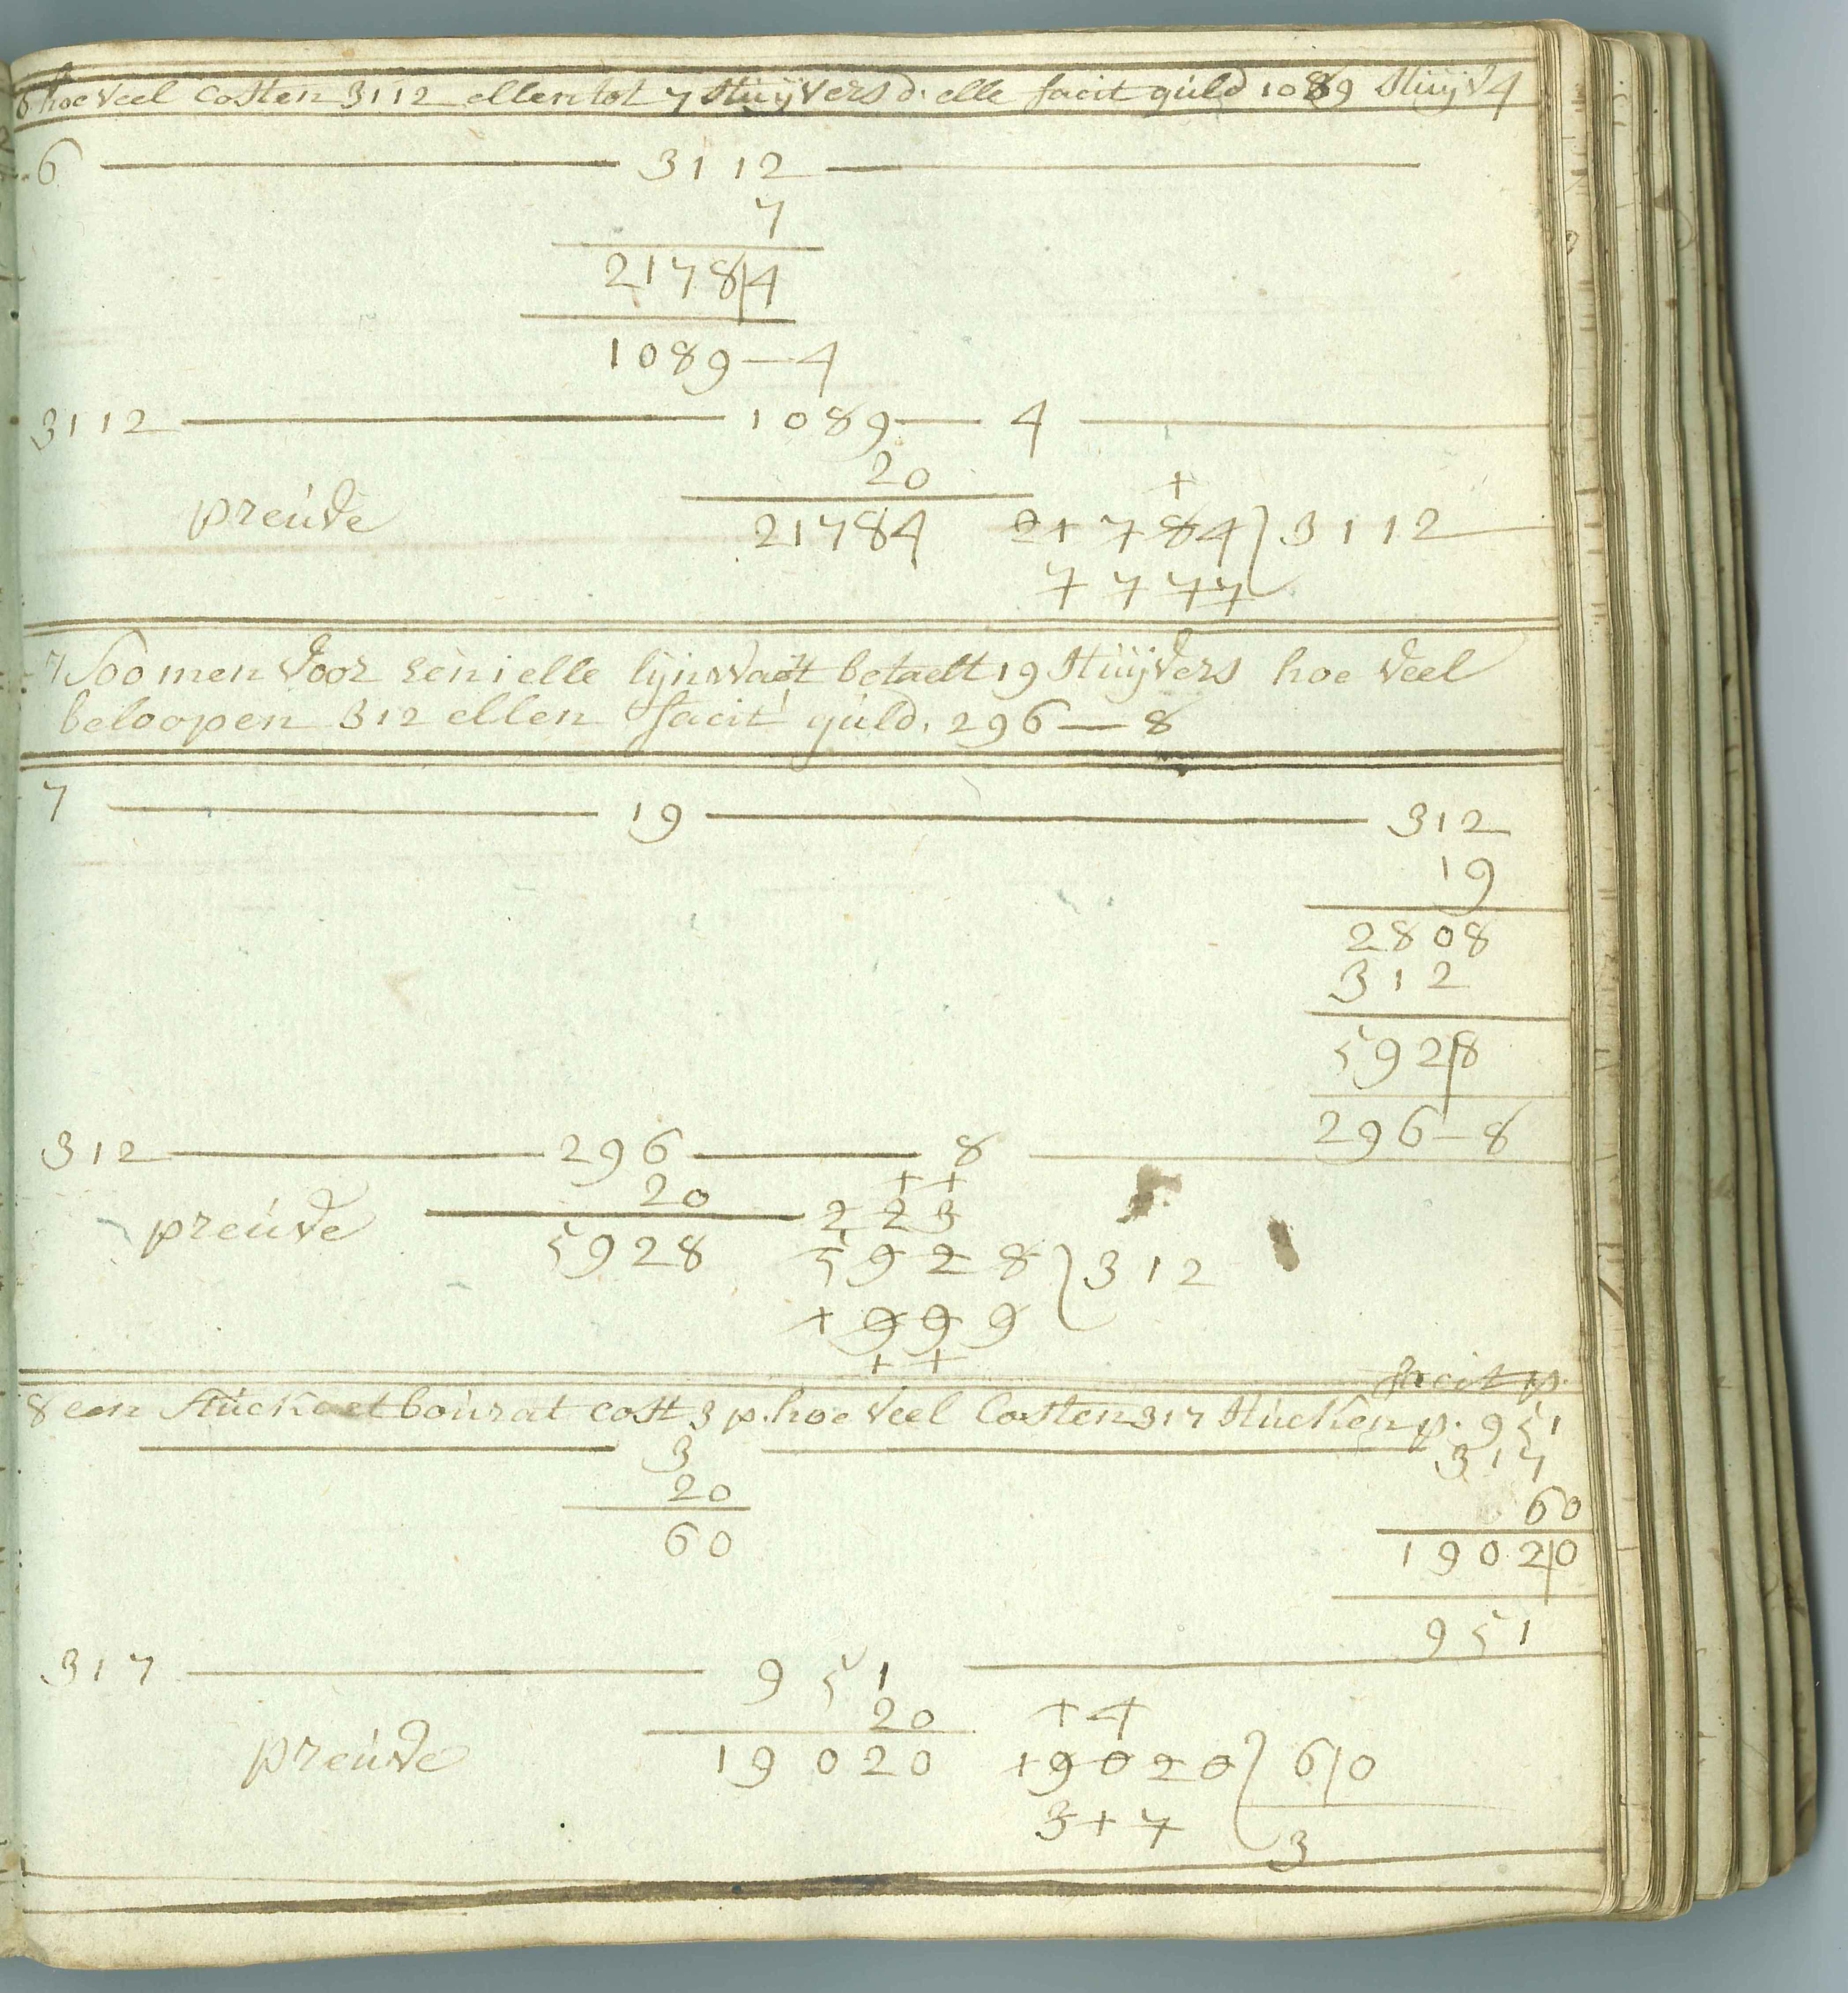 6 hoe veel costen 3112 ellen tot 7 stuijvers d' elle facit guld 1089 stuijv 4
6 3112
7
2178|4
1089 — 4
3112 1089 — 4
20
preuve 21784 21784 ) 3112
7777
7 Soo men voor een 1 elle lijnwaet betaelt 19 stuijvers hoe veel
beloopen 312 ellen facit guld. 296 — 8
7 19 312
19
2808
312
592|8
296 — 8
312 296 8
20
preuve 5928
1 1
2 2 3
5928 ) 312
1 9 9 9
1 1
facit p.
8 een stuck bourat cost 3 p. hoe veel costen 317 stucken p. 951
3 317
20 60
60 1902|0
951
317 951
20
preuve 19020
1 4
19020 ) 6|0
3 1 7 3